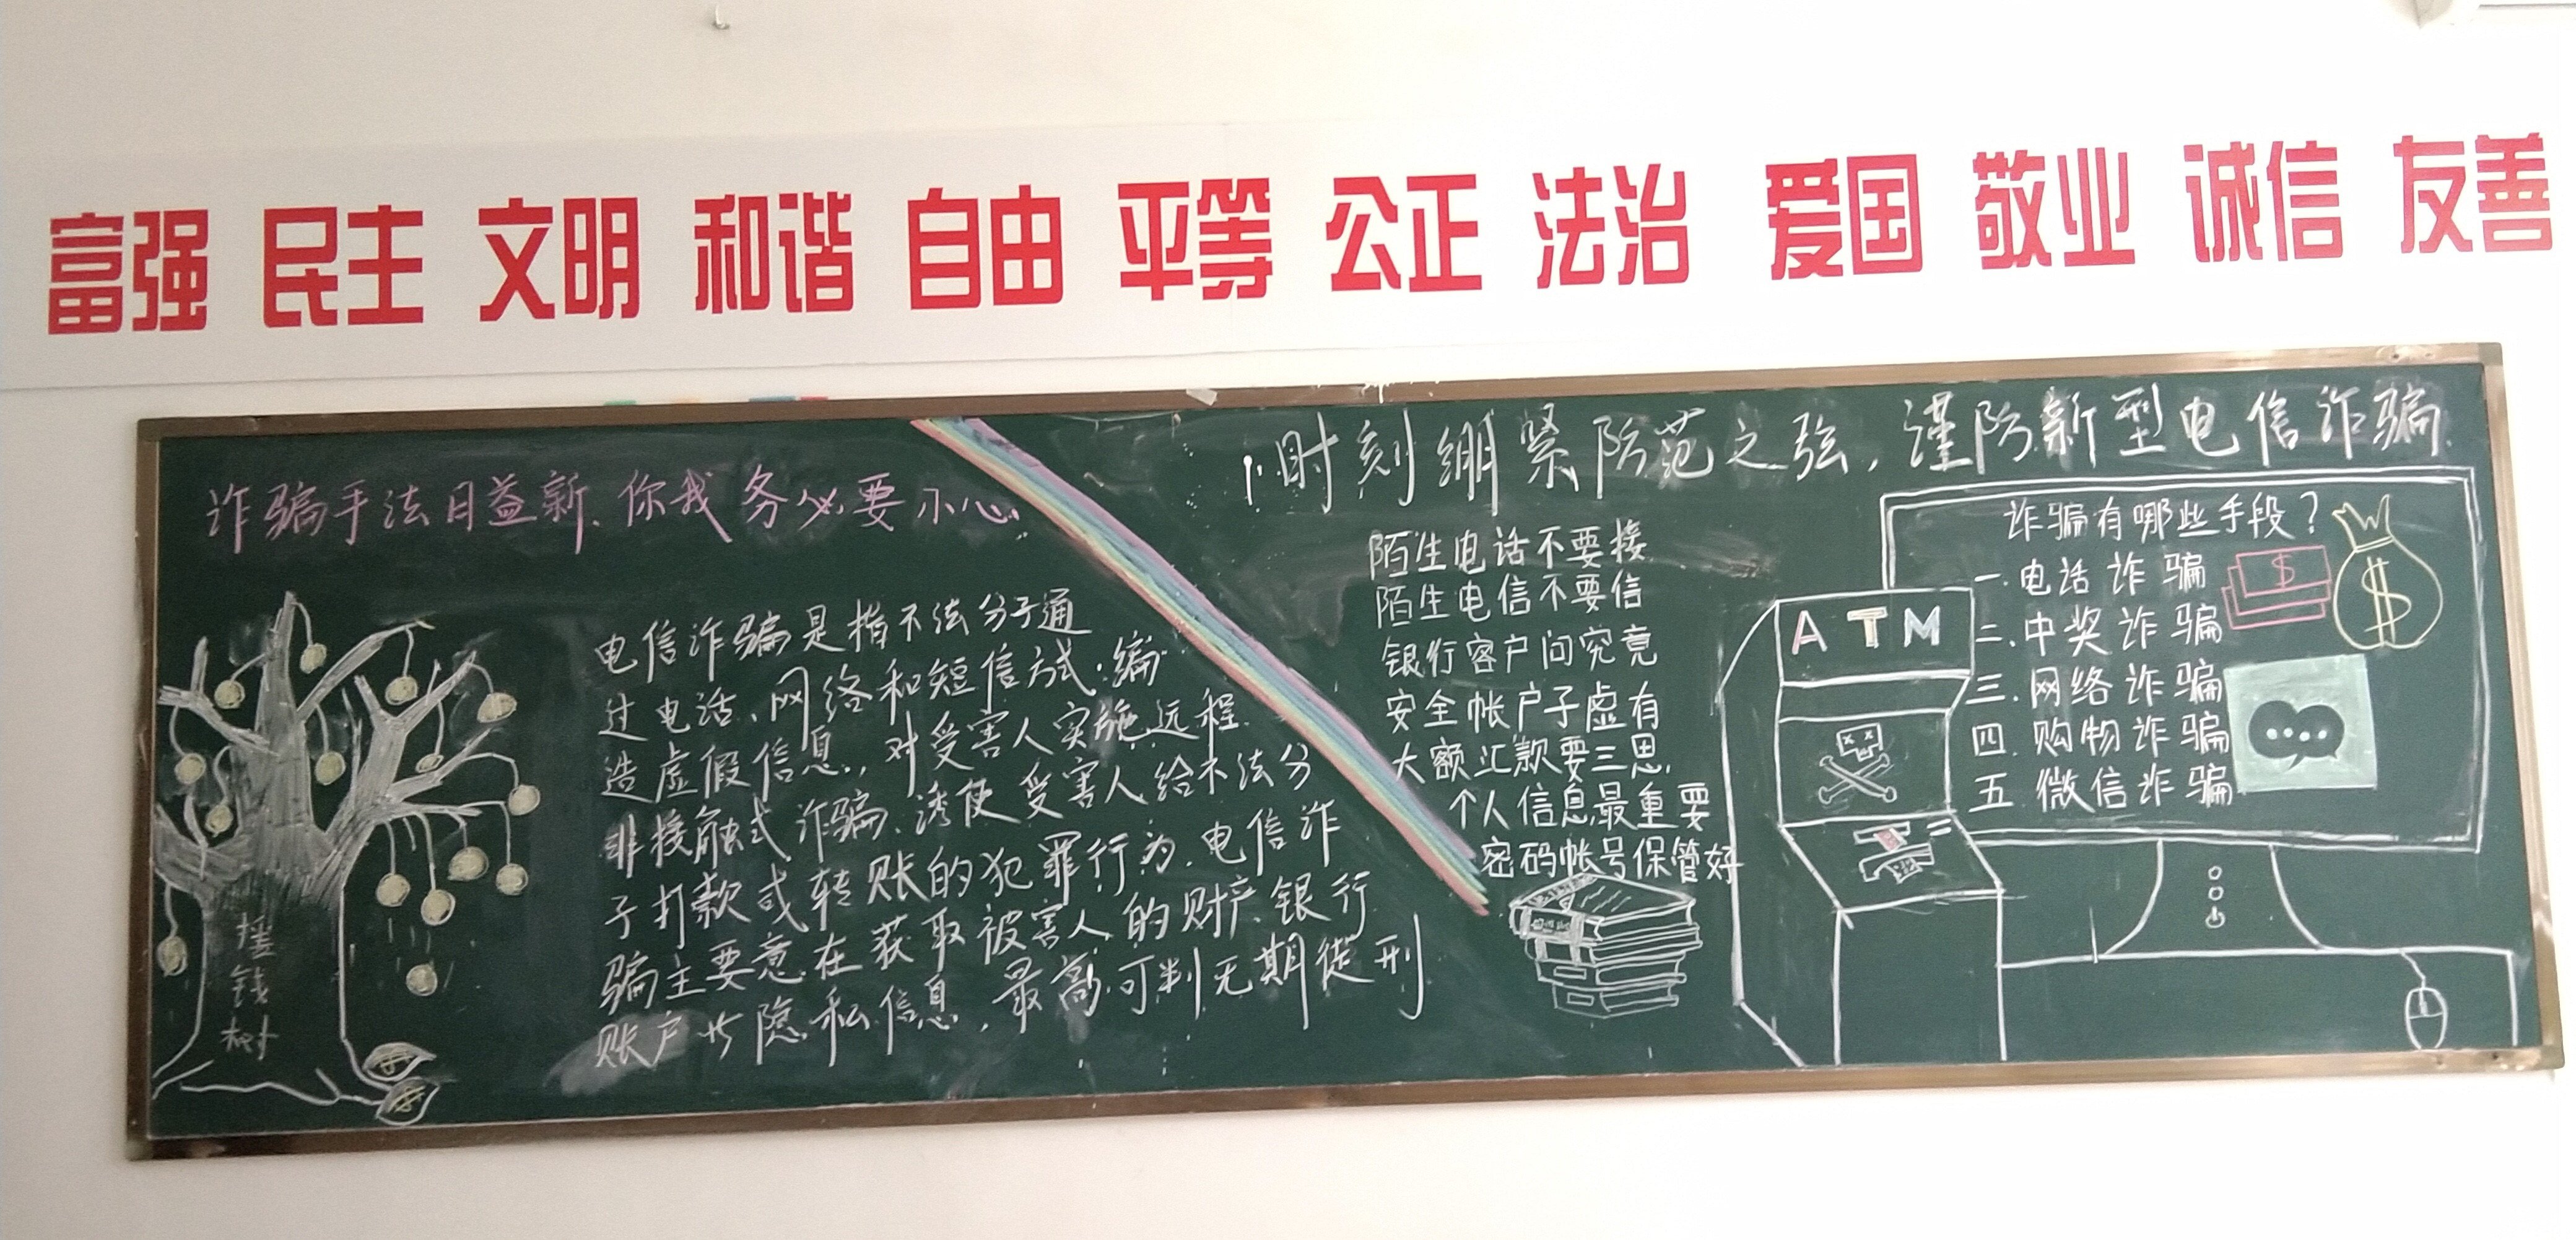 富强 民主 文明 和谐 自由 平等 公正 法治 爱国 敬业 诚信 友善
诈骗手法日益新、你我务必要小心.
电信诈骗是指不法分子通
过电话、网络和短信方式.编
造虚假信息，对受害人实施远程
非接触式诈骗、诱使受害人给不法分
子打款或转账的犯罪行为.电信诈
骗主要意在获取被害人的财产.银行
账户隐私信息，最高可判无期徒刑
摇钱树
时刻绷紧防范之弦，谨防新型电信诈骗
陌生电话不要接
陌生电信不要信
银行客户问究竟
安全帐户子虚有
大额汇款要三思
个人信息最重要
密码帐号保管好
ATM
诈骗有哪些手段？
一.电话诈骗
二.中奖诈骗
三.网络诈骗
四.购物诈骗
五 微信诈骗
$
$